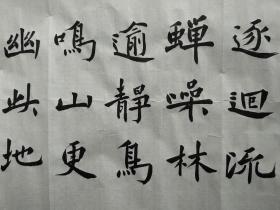 逐迴流
蟬噪林
逾靜鳥
鳴山更
幽此地